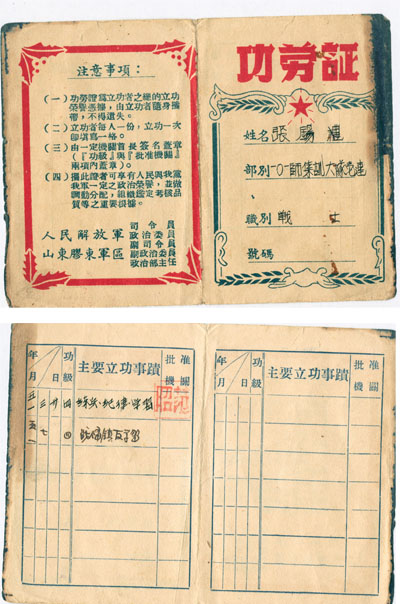 注意事項：
（一）功勞證爲立功者之種的立功
榮譽憑據，由立功者隨身攜
帶，不得遺失。
（二）立功者每人一份，立功一次
即填寫一格。
（三）由一定機關首長簽名蓋章
（『功級』與『批准機關』
兩項內蓋章）。
（四）攜此證者可享有人民與我黨
我軍一定之政治榮譽，並做
調動分配，組織鑑定考核品
質等之重要根據。
人民解放軍
山東膠東軍區
司令員
政治委員
副司令員
副政治委員
政治部主任
功勞証
姓名 張賜
部別 一〇一師集訓大隊
職別 戰士
號碼
年月日
功級
主要立功事蹟
批准機關
五一 三 廿 四
五一 七 四
年月日
功級
主要立功事蹟
批准機關